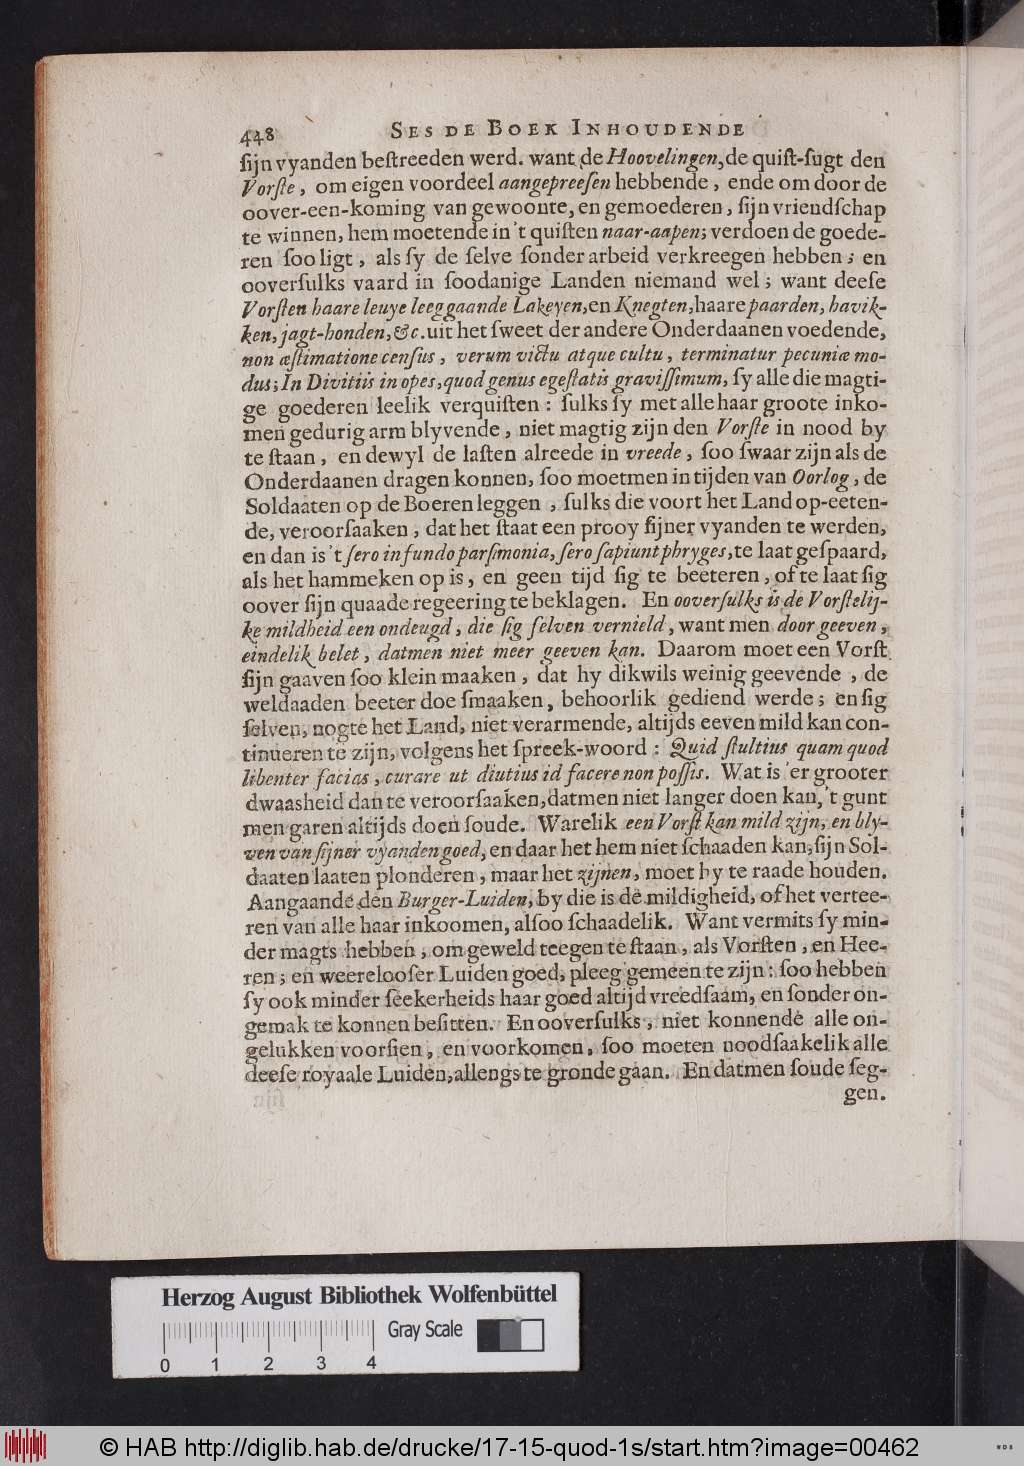 448 SES DE BOEK INHOUDENDE
ſijn vyanden beſtreeden werd. want de Hoovelingen, de quiſt-ſugt den
Vorſte, om eigen voordeel aangepreeſen hebbende, ende om door de
oover-een-koming van gewoonte, en gemoederen, ſijn vriendſchap
te winnen, hem moetende in 't quiſten naar-aapen; verdoen de goede-
ren ſoo ligt, als ſy de ſelve ſonder arbeid verkreegen hebben; en
ooverſulks vaard in ſoodanige Landen niemand wel; want deeſe
Vorſten haare leuye leeggaande Lakeyen, en Knegten, haare paarden, havik-
ken, jagt-honden, &c. uit het ſweet der andere Onderdaanen voedende,
non æſtimatione cenſus, verum victu atque cultu, terminatur pecuniæ mo-
dus; In Divitiis in opes, quod genus egeſtatis graviſſimum, ſy alle die magti-
ge goederen leelik verquiſten: ſulks ſy met alle haar groote inko-
men gedurig arm blyvende, niet magtig zijn den Vorſte in nood by
te ſtaan, en dewyl de laſten alreede in vreede, ſoo ſwaar zijn als de
Onderdaanen dragen konnen, ſoo moetmen in tijden van Oorlog, de
Soldaaten op de Boeren leggen, ſulks die voort het Land op-eeten-
de, veroorſaaken, dat het ſtaat een prooy ſijner vyanden te werden,
en dan is 't ſero in fundo parſimonia, ſero ſapiunt phryges, te laat geſpaard,
als het hammeken op is, en geen tijd ſig te beeteren, of te laat ſig
oover ſijn quaade regeering te beklagen. En ooverſulks is de Vorſtelij-
ke mildheid een ondeugd, die ſig ſelven vernield, want men door geeven,
eindelik belet, datmen niet meer geeven kan. Daarom moet een Vorſt
ſijn gaaven ſoo klein maaken, dat hy dikwils weinig geevende, de
weldaaden beeter doe ſmaaken, behoorlik gediend werde; en ſig
ſelven, nogte het Land, niet verarmende, altijds eeven mild kan con-
tinueren te zijn, volgens het ſpreek-woord: Quid ſtultius quam quod
libenter facias, curare ut diutius id facere non poſſis. Wat is 'er grooter
dwaasheid dan te veroorſaaken, datmen niet langer doen kan, 't gunt
men garen altijds doen ſoude. Warelik een Vorſt kan mild zijn, en bly-
ven van ſijner vyanden goed, en daar het hem niet ſchaaden kan, ſijn Sol-
daaten laaten plonderen, maar het zijnen, moet hy te raade houden.
Aangaande den Burger-Luiden, by die is de mildigheid, of het vertee-
ren van alle haar inkoomen, alſoo ſchaadelik. Want vermits ſy min-
der magts hebben, om geweld teegen te ſtaan, als Vorſten, en Hee-
ren; en weerelooſer Luiden goed, pleeg gemeen te zijn: ſoo hebben
ſy ook minder ſeekerheids haar goed altijd vreedſaam, en ſonder on-
gemak te konnen beſitten. En ooverſulks, niet konnende alle on-
gelukken voorſien, en voorkomen, ſoo moeten noodſaakelik alle
deeſe royaale Luiden, allengs te gronde gaan. En datmen ſoude ſeg-
gen.
Herzog August Bibliothek Wolfenbüttel
Gray Scale
0 1 2 3 4
© HAB http://diglib.hab.de/drucke/17-15-quod-1s/start.htm?image=00462